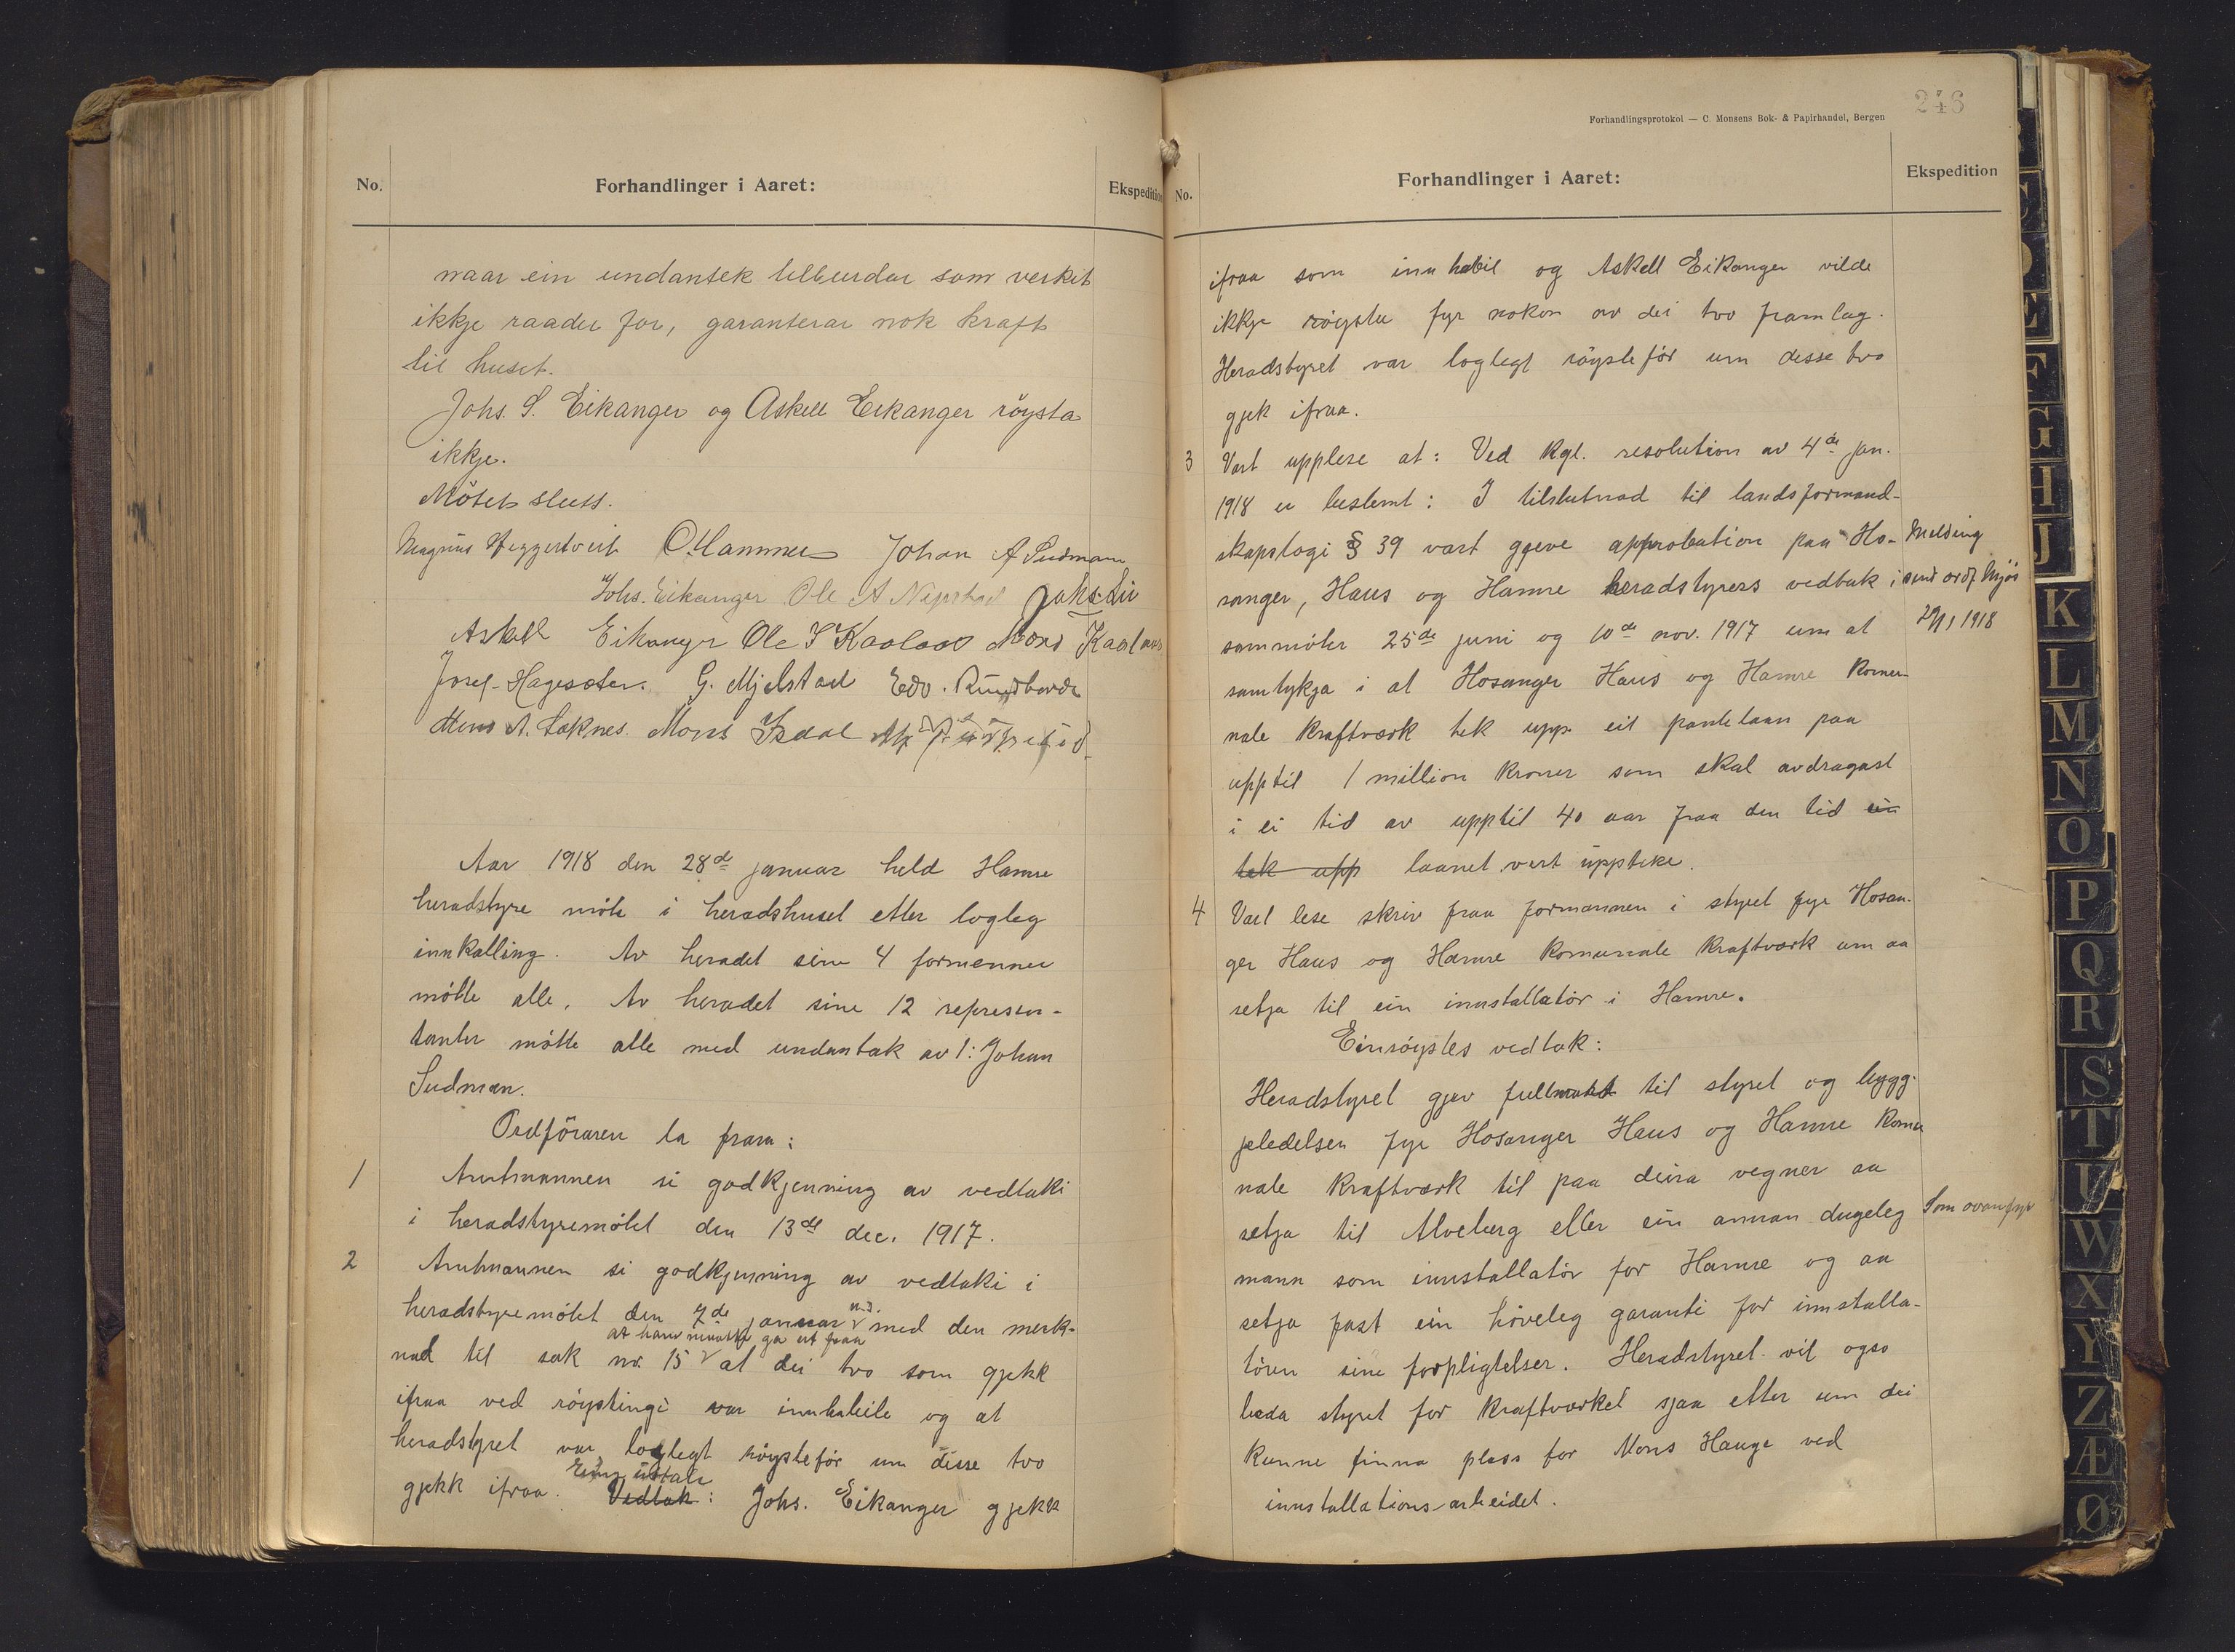 No.
Forhandlinger i Aaret:
Ekspedition
naar ein undantek tilburdar som verket
ikkje raader for, garanterar nok kraft
til huset.
Johs. S. Eikanger og Askell Eikanger röysta
ikkje.
Mötet slutt.
Magnus Heggertveit O Hammer Johan A Sudmann
Johs. Eikanger Ole A Nepstad Johs. Li
Askell Eikanger Ole S Kaalaas Mons Kaalaas
Josef Hagesæter. G. Mjelstad Edv. Rundhovde
Mons A. Soknes. Mons Isdal
Aar 1918 den 28de januar held Hamre
heradstyre möte i heradshuset etter logleg
innkalling. Av heradet sine 4 formenner
mötte alle. Av heradet sine 12 represen-
tanter mötte alle med undantak av 1: Johan
Sudman.
Ordföraren la fram:
1 Amtmannen si godkjenning av vedtaki
i heradstyremötet den 13de dec. 1917.
2 Amtmannen si godkjenning av vedtaki i
n.s.
heradstyremötet den 7de januar v med den merk-
at ut fraa
nad til sak nr. 15 v at dei tvo som gjekk
ifraa ved röystingi var innhabile og at
heradstyret var loglegt röysteför um disse tvo
uttale
gjekk ifraa. Vedtak: Johs. Eikanger gjekk
246
Forhandlingsprotokol — C. Monsens Bok- & Papirhandel, Bergen
No.
Forhandlinger i Aaret:
Ekspedition
ifraa som innhabil og Askell Eikanger vilde
ikkje röyste fyr nokon av dei tvo framlag.
Heradstyret var loglegt röysteför um desse tvo
gjek ifraa.
3 Vart upplese at: Ved kgl. resolution av 4de jan.
1918 er bestemt: I tilslutnad til landsformand-
skapslogi § 39 vart gjeve approbation paa Ho-
sanger, Haus og Hamre heradstyrers vedtak i
sammöter 25de juni og 10de nov. 1917 um at
samtykja i at Hosanger Haus og Hamre komu-
nale kraftverk tek upp eit pantelaan paa
upptil 1 million kroner som skal avdragast
i ei tid av upptil 40 aar fraa den tid ein
tek upp laanet vert uppteke.
Melding
send ordf. Mjös
1918
4 Vart lese skriv fraa formannen i styret fyr Hosan-
ger Haus og Hamre komunale kraftverk um aa
setja til ein innstallatör i Hamre.
Einröystes vedtak:
Heradstyret gjev fullmakt til styret og bygg-
jeledelsen fyr Hosanger Haus og Hamre komu
nale kraftverk til paa deira vegner aa
setja til Alveberg eller ein annan dugeleg
mann som innstallatör for Hamre og aa
setja fast ein höveleg garanti for innstalla-
tören sine forpligtelser. Heradstyret vil ogso
beda styret for kraftverket sjaa etter um dei
kunne finna plass for Mons Hauge ved
innstallations-arbeidet.
Som ovanfyr
E
F
G
H
I
J
K
L
M
N
O
P
Q
R
S
T
U
W
X
Y
Z
Æ
Ø